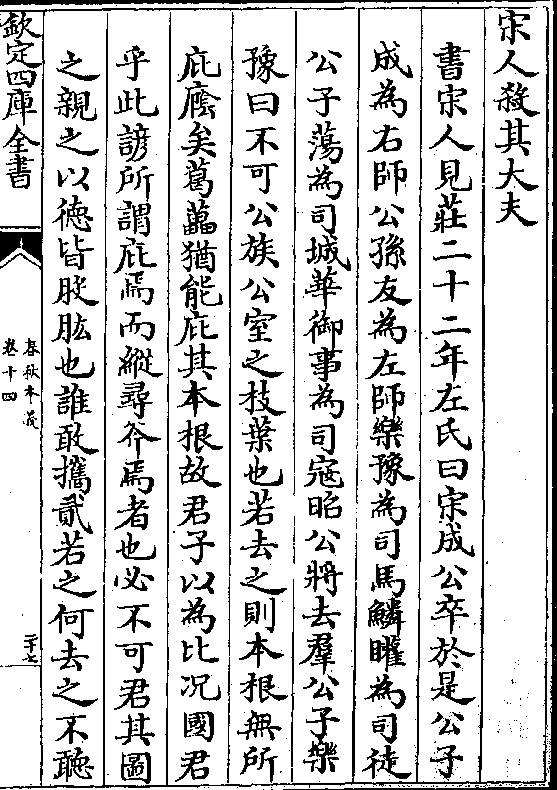 宋人殺其大夫
書宋人見莊二十二年左氏曰宋成公卒於是公子
成為右師公孫友為左師樂豫為司馬鱗矔為司徒
公子蕩為司城華御事為司寇昭公將去羣公子樂
豫曰不可公族公室之枝葉也若去之則本根無所
庇廕矣葛藟猶能庇其本根故君子以為比况國君
乎此諺所謂庇焉而縱尋斧焉者也必不可君其圖
之親之以德皆股肱也誰敢攜貳若之何去之不聽
欽定四庫全書
春秋本義
卷十四
二十七